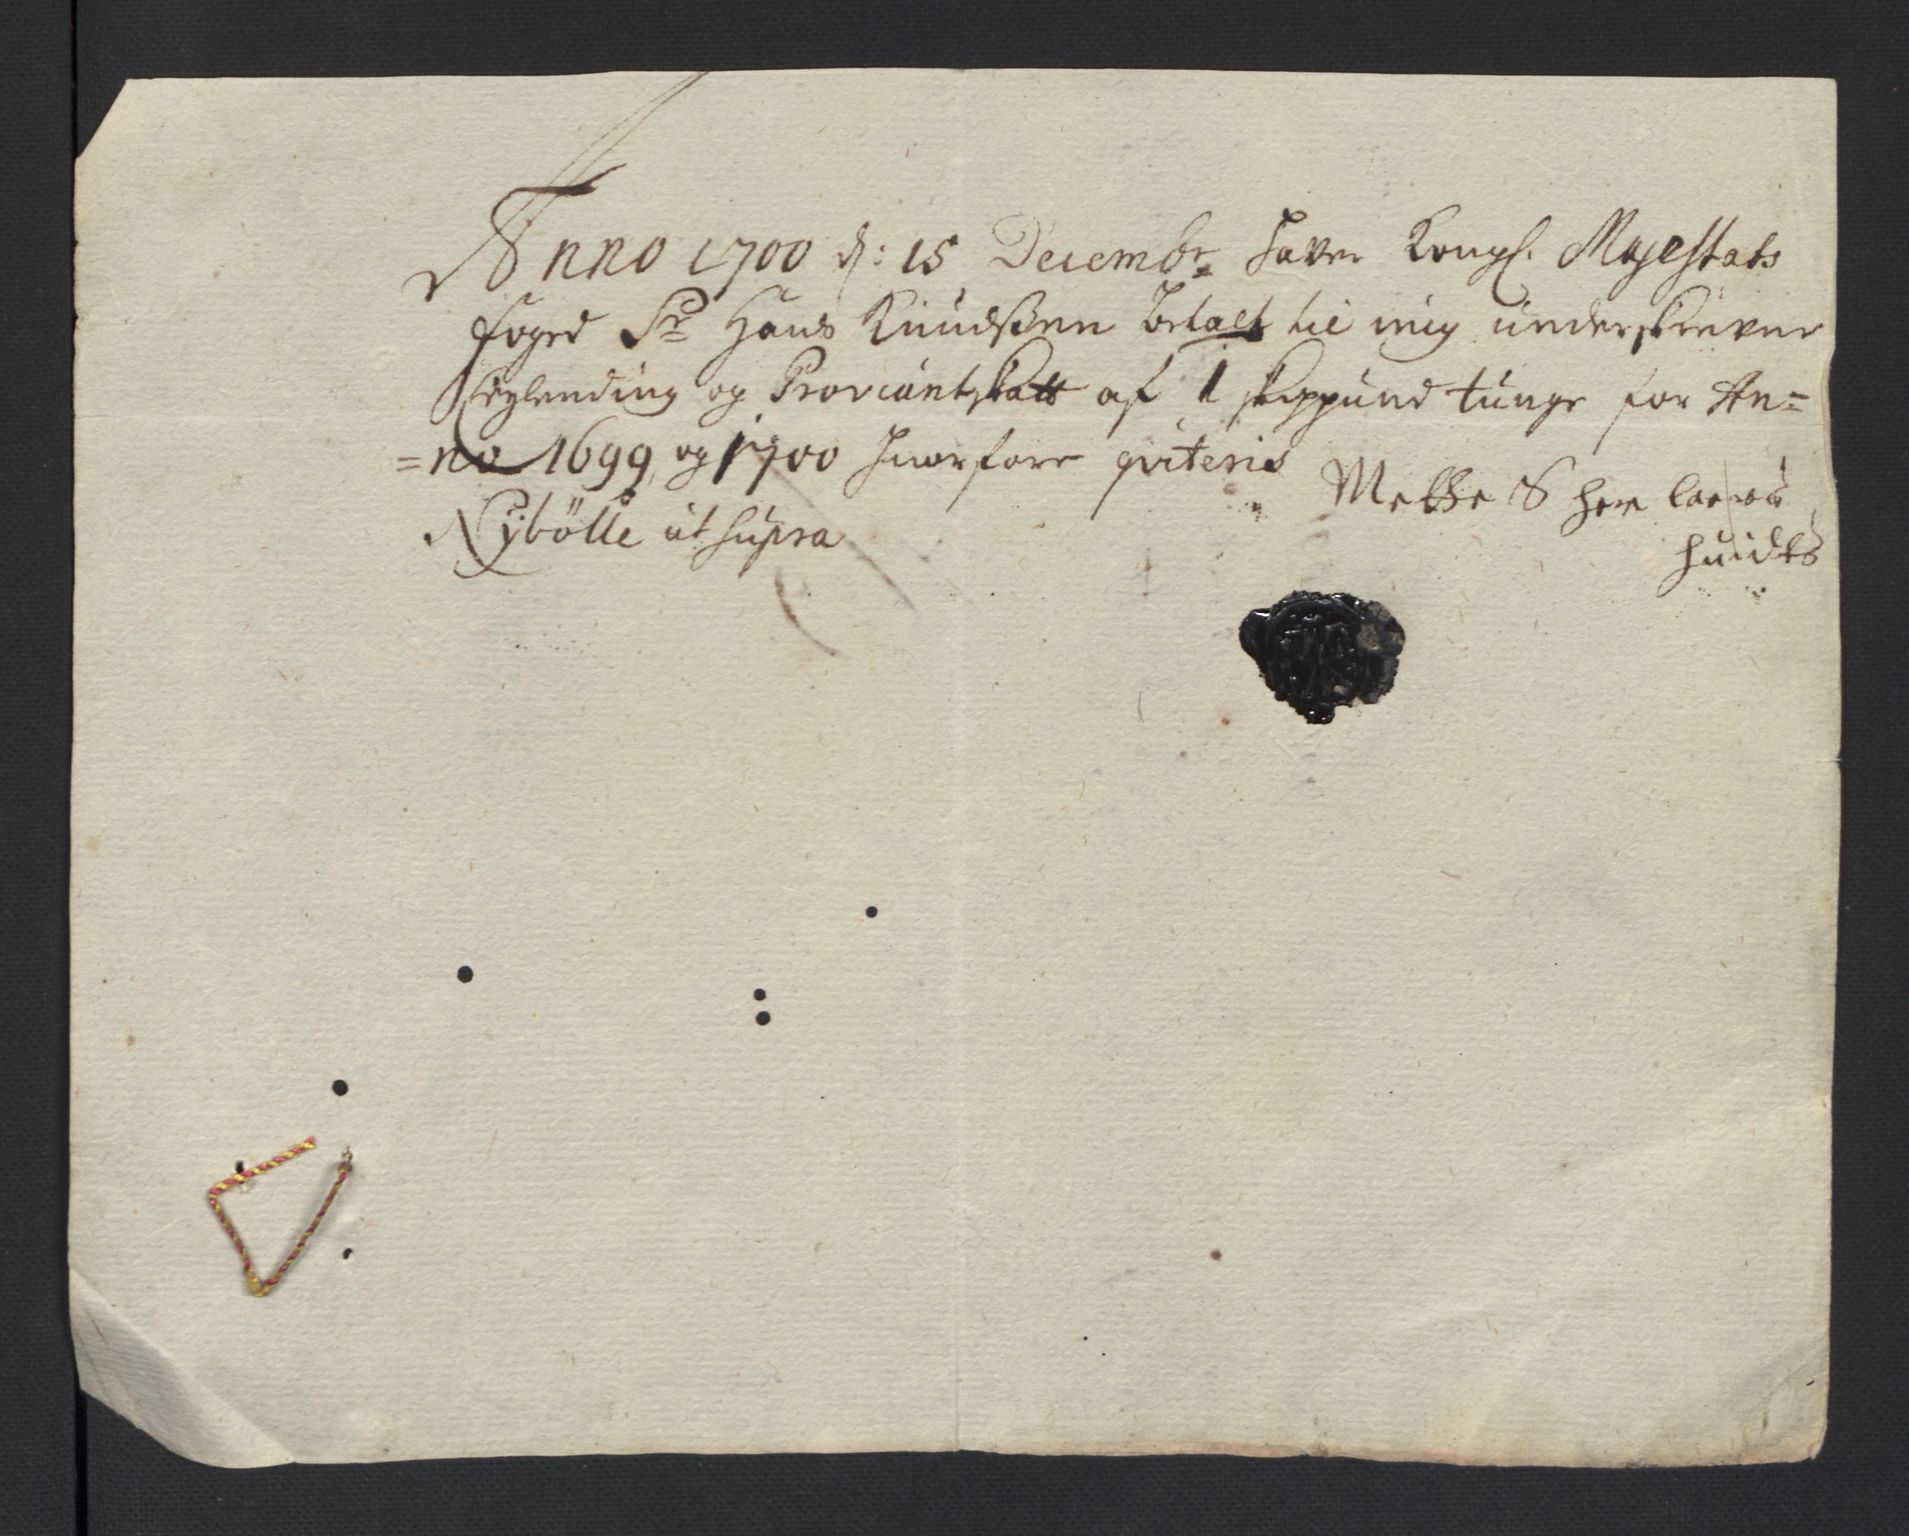 Anno 1700 d: 15 Decembr haver Kongl. Majestats
foged Sr Hans Knudßen betalt til mig underskrevne
leylending og Proviantskatt af 1 skippund tunge for An=
=no 1699 og 1700 hvorfore qviteris
Mette S her
Nybölle ut supra
huidts